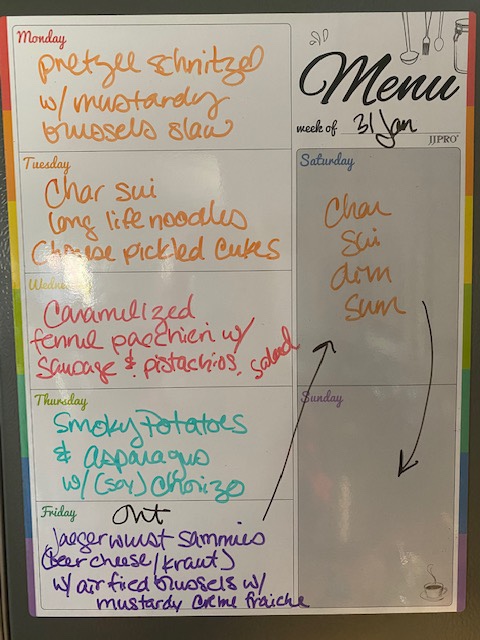 Monday
pretzel schnitzel
w/ mustardy
brussels slaw
Menu
week of 31 Jan
JJPRO®
Tuesday
Char sui
long life noodles
Chinese pickled cukes
Wednesday
Caramelized
fennel paccheri w/
sausage & pistachios, salad
Thursday
Smoky Potatoes
& asparagus
w/ (soy) chorizo
Friday
Out
Jaegerwurst sammies
(beer cheese/kraut)
w/ air fried brussels w/
mustardy creme fraiche
Saturday
Char
Sui
dim
Sum
Sunday